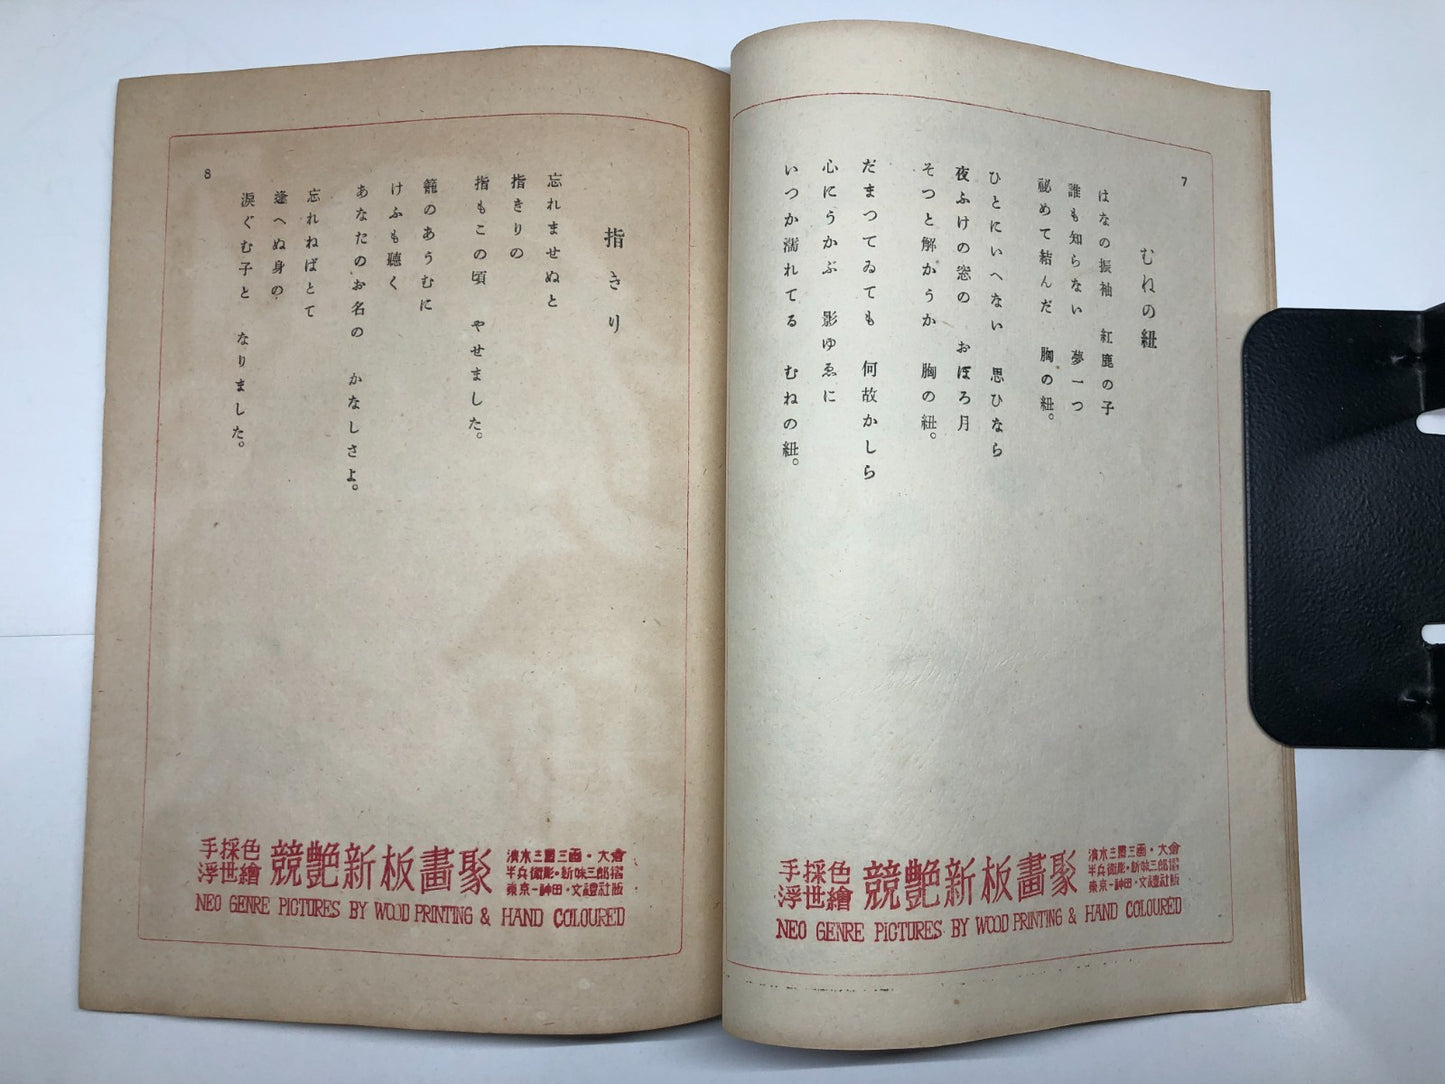 7
むねの紐
はなの振袖　紅鹿の子
誰も知らない　夢一つ
祕めて結んだ　胸の紐。
ひとにいへない　思ひなら
夜ふけの窓の　おぼろ月
そつと解かうか　胸の紐。
だまつてゐても　何故かしら
心にうかぶ　影ゆゑに
いつか濡れてる　むねの紐。
手採色
浮世繪
競艶新板畫聚
東京―神田・文禮社版
NEO GENRE PICTURES BY WOOD PRINTING & HAND COLOURED
指きり
忘れませぬと
指きりの
指もこの頃　やせました。
籠のあうむに
けふも聽く
あなたのお名の　かなしさよ。
忘れねばとて
逢へぬ身の
淚ぐむ子と　なりました。
8
手採色
浮世繪
競艶新板畫聚
東京―神田・文禮社版
NEO GENRE PICTURES BY WOOD PRINTING & HAND COLOURED